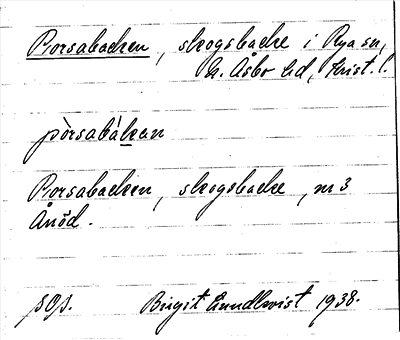 Porsabacken, skogsbacke i Rya sn,
N. Åsbo hd, Krist. l.
pòrsabàkan
Porsabacken, skogsbacke, nr 3
Änöd.
pop. Birgit Lundkvist 1938.